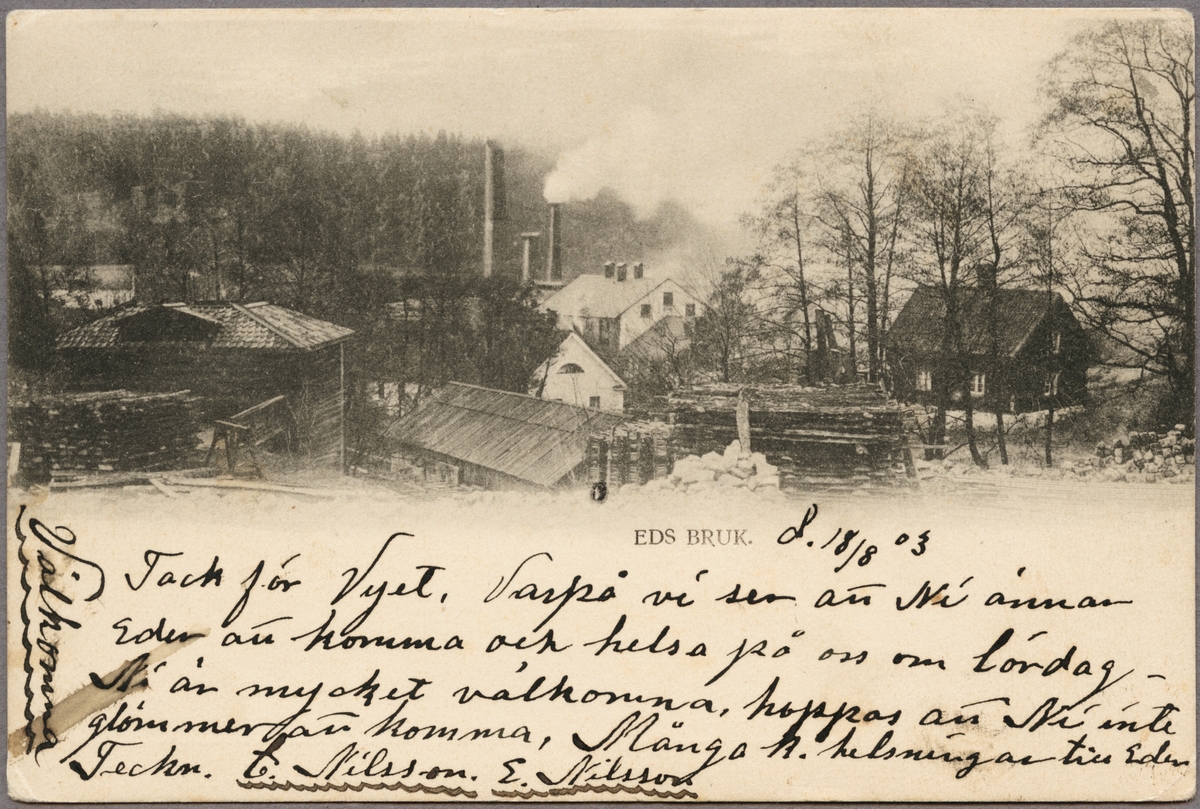 EDS BRUK. d. 18/8 03
Tack för Vyet, Varpå vi ser att Ni ämnar
Eder att komma och helsa på oss om lördag –
Ni är mycket välkomna, hoppas att Ni inte
glömmer att komma, Många k. helsningar till Eder
Teckn. E. Nilsson. E. Nilsson
Välkomna